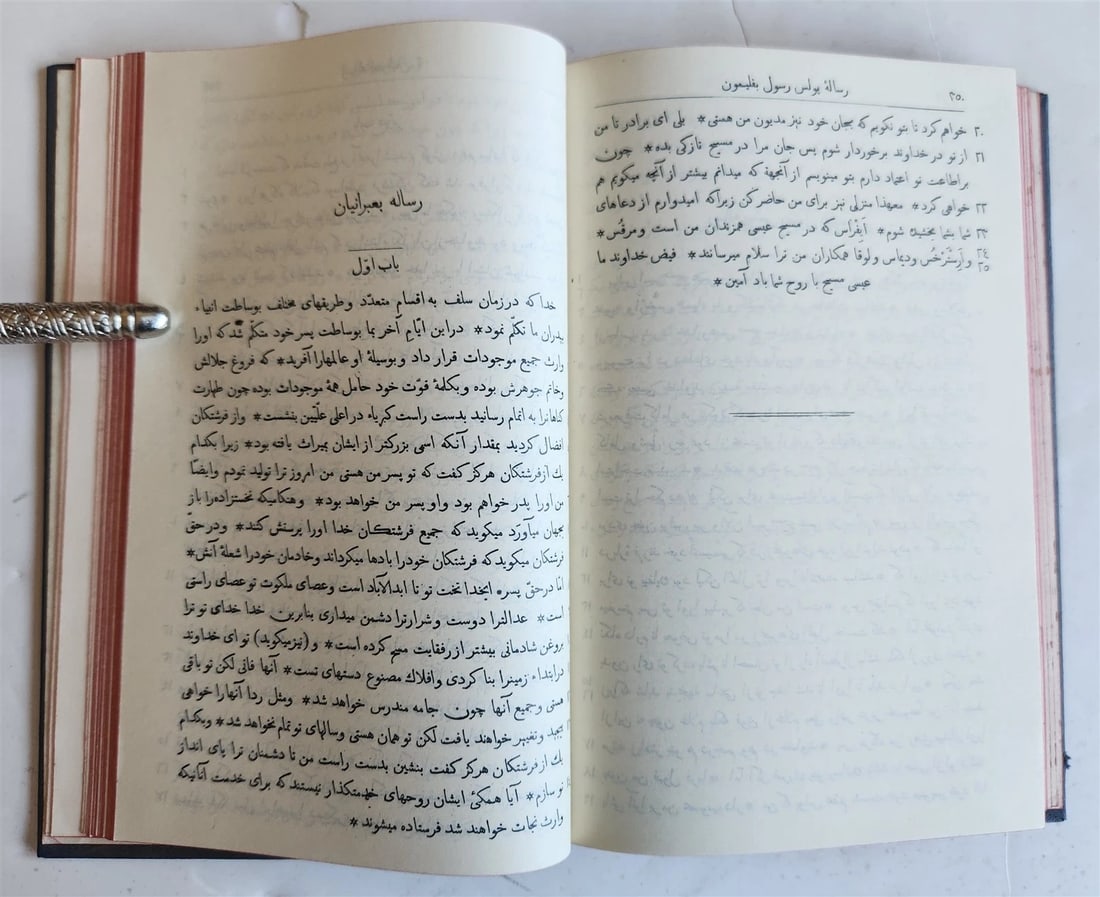 رسالهٔ پولس رسول بفلیمون
۲۵۰
۲۰ خواهم کرد تا بتو نکویم که بجان خود نیز مدیون من هستی * بلی ای برادر تا من
۲۱ از تو در خداوند برخوردار شوم پس جان مرا در مسیح تازکی بده * چون
براطاعت تو اعتماد دارم بتو مینویسم از آنجهة که میدانم بیشتر از آنچه میکویم هم
۲۲ خواهی کرد * معهذا منزلی نیز برای من حاضر کن زیراکه امیدوارم از دعاهای
۲۳ شما بشما بخشیده شوم * اَپَفْراس که در مسیح عیسی همزندان من است و مرقُس *
۲۴ و اَرِسْتَرْخُس و دیماس و لوقا همکاران من ترا سلام میرسانند * فیض خداوند ما
۲۵
عیسی مسیح با روح شما باد آمین *
رساله بعبرانیان
باب اوّل
خدا که در زمان سلف به اقسام متعدّد و طریقهای مختلف بوساطت انبیاء
بپدران ما تکلّم نمود * در این ایّام آخر بما بوساطت پسر خود متکلّم شد که اورا
وارث جمیع موجودات قرار داد و بوسیلهٔ او عالمهارا آفرید * که فروغ جلالش
وخاتم جوهرش بوده و بکلمهٔ قوّت خود حامل همهٔ موجودات بوده چون طهارت
کناهانرا به اتمام رسانید بدست راست کبریاء در اعلی علّیین بنشست * و از فرشتکان
افضل کردید بمقدار آنکه اسمی بزرکتر از ایشان بمیراث یافته بود * زیرا بکدام
یك از فرشتکان هرکز کفت که تو پسر من هستی من امروز ترا تولید نمودم وایضًا
من اورا پدر خواهم بود و او پسر من خواهد بود * وهنکامیکه نخستزاده‌را باز
بجهان میآوَرَد میکوید که جمیع فرشتکان خدا اورا پرستش کنند * و در حقّ
فرشتکان میکوید که فرشتکان خودرا بادها میکرداند وخادمان خودرا شعلهٔ آتش *
امّا در حقّ پسره ایخدا تخت تو تا ابدالآباد است وعصای ملکوت تو عصای راستی
است * عدالترا دوست وشرارترا دشمن میداری بنابرین خدا خدای تو ترا
بروغن شادمانی بیشتر از رفقایت مسح کرده است * و (نیزمیکوید) تو ای خداوند
درابتداء زمینرا بنا کردی وافلاك مصنوع دستهای تست * آنها فانی لکن تو باقی
هستی وجمیع آنها چون جامه مندرس خواهد شد * ومثل ردا آنهارا خواهی
پیچید وتغییر خواهند یافت لکن تو همان هستی وسالهای تو تمام نخواهد شد * وبکدام
یك از فرشتکان هرکز کفت بنشین بدست راست من تا دشمنان ترا پای انداز
تو سازم * آیا همکئ ایشان روحهای خدمتکذار نیستند که برای خدمت آنانیکه
وارث نجات خواهند شد فرستاده میشوند *